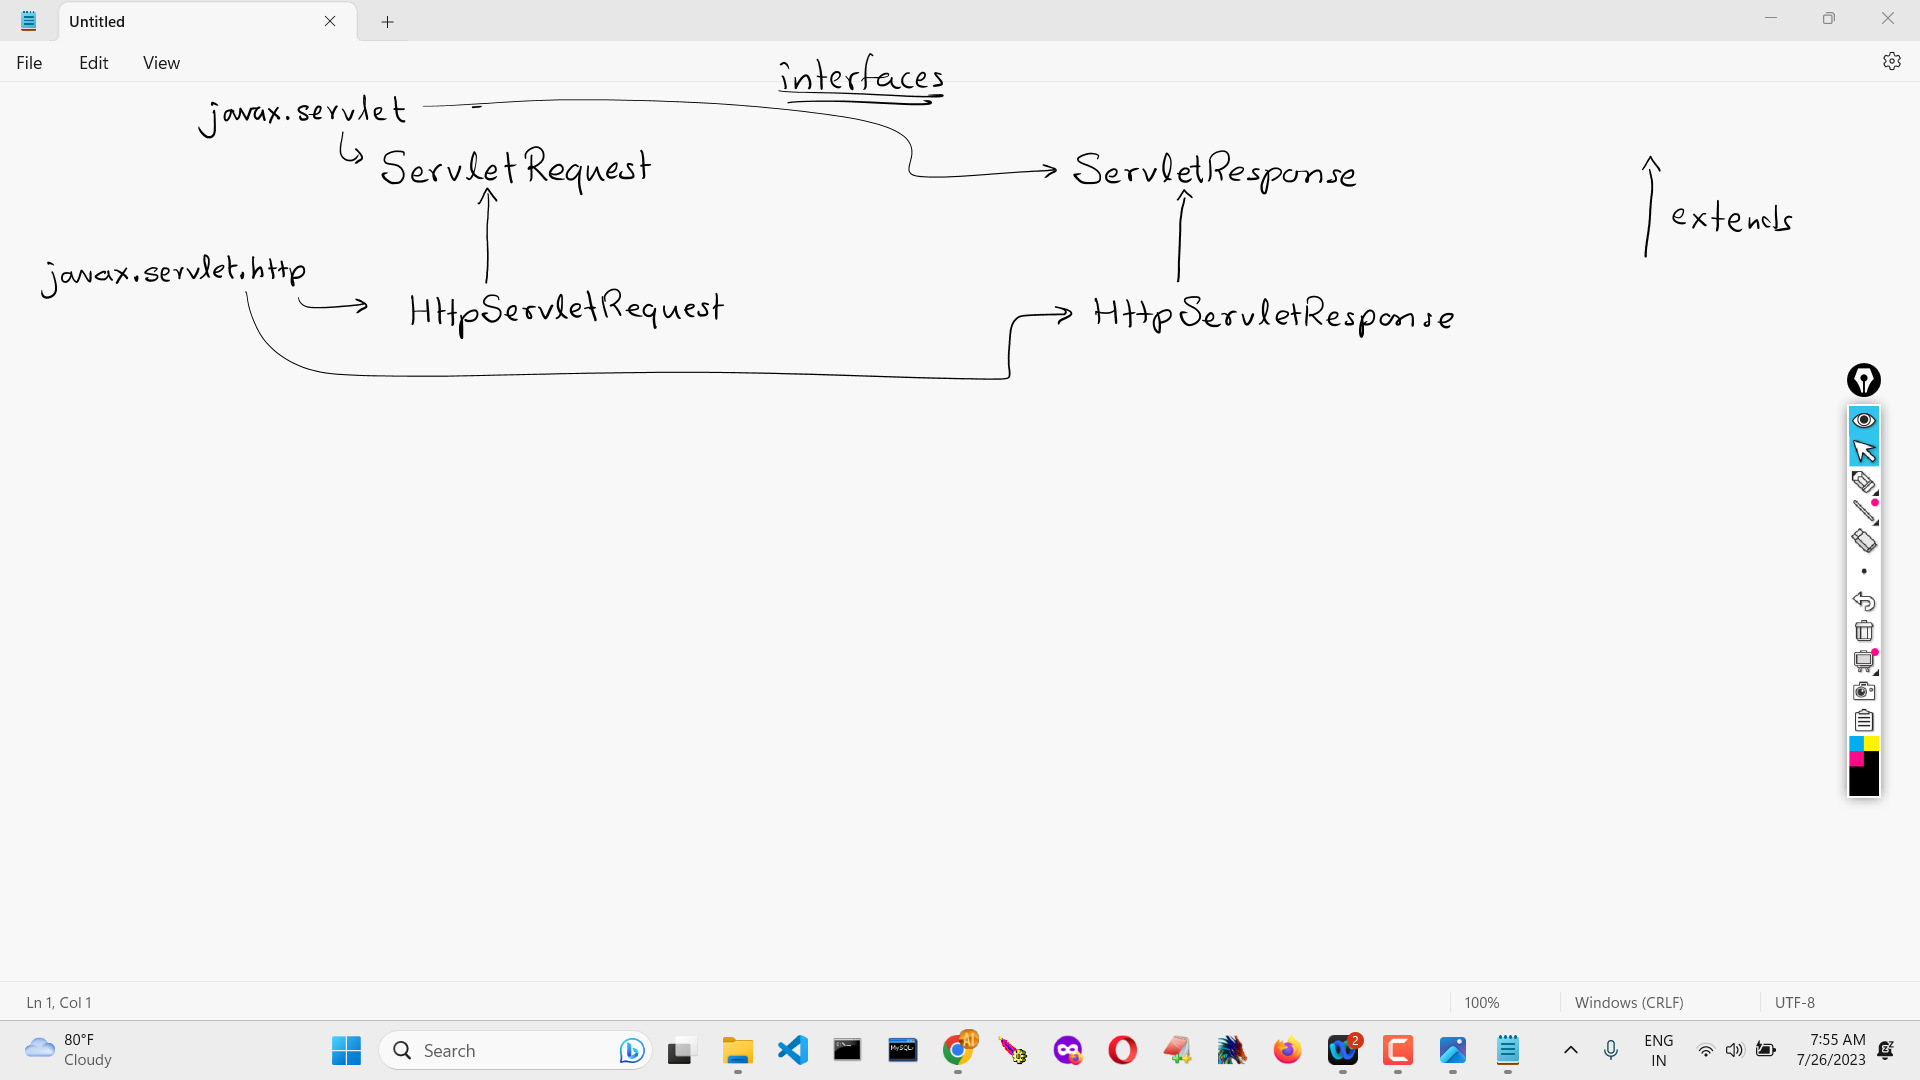 Untitled
File Edit View
interfaces
javax.servlet
ServletRequest ServletResponse
extends
javax.servlet.http
HttpServletRequest HttpServletResponse
Ln 1, Col 1 100% Windows (CRLF) UTF-8
80°F
Cloudy
Search
MySQL
AI
2
ENG
IN
7:55 AM
7/26/2023